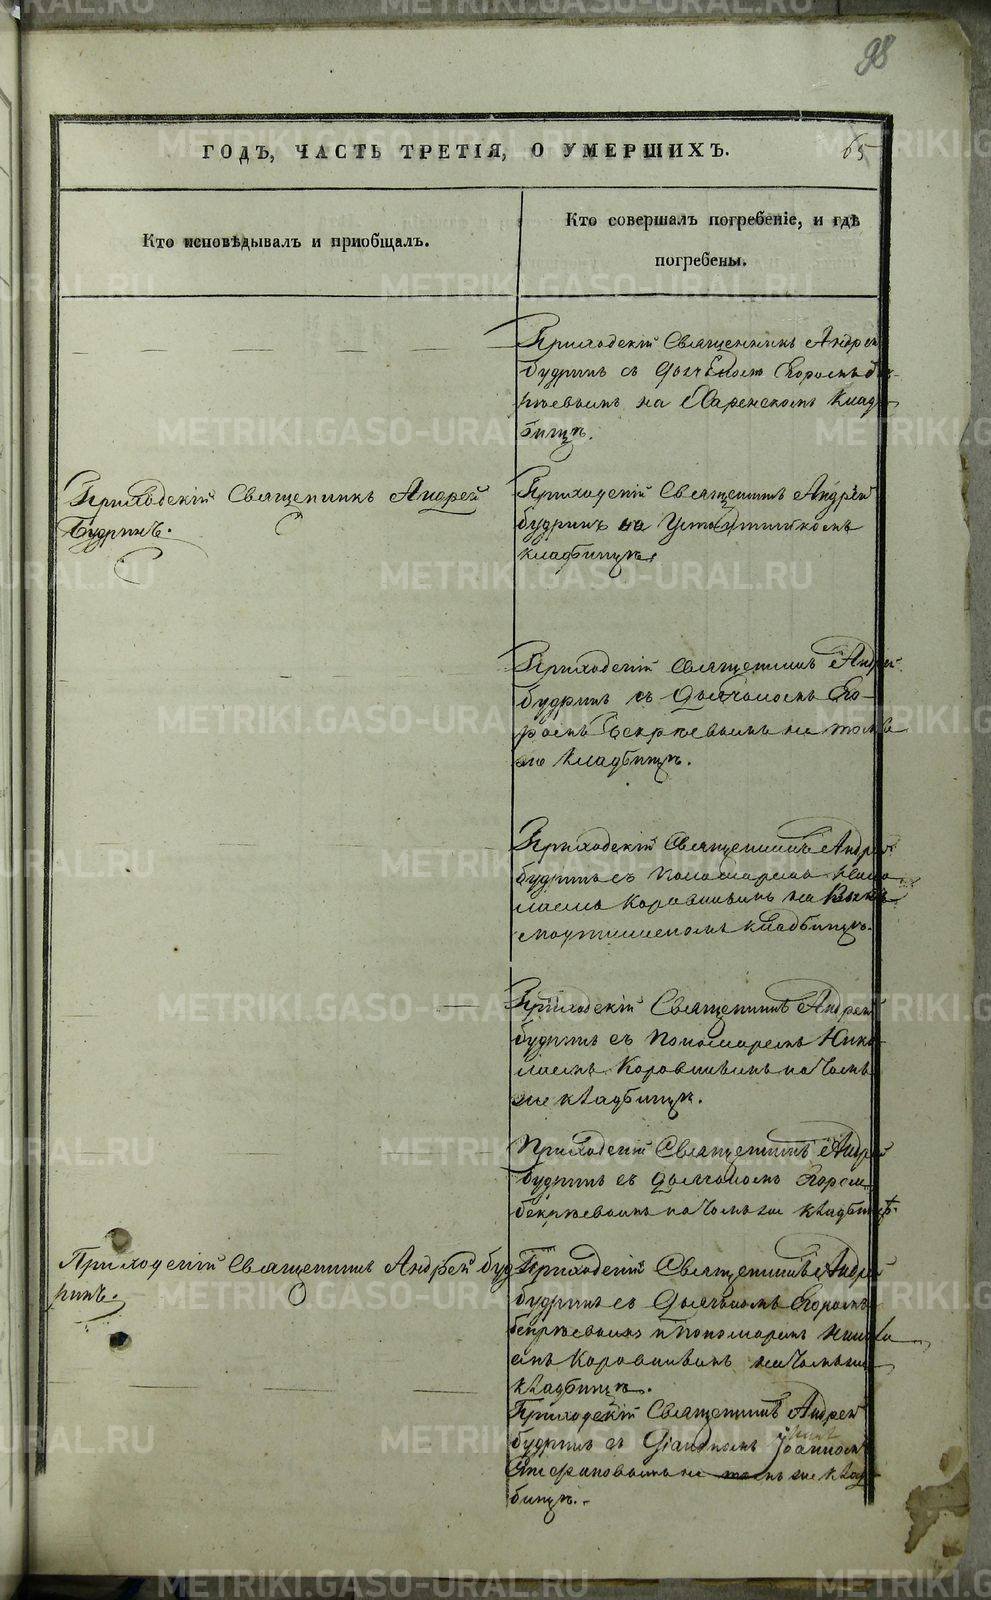 98
ГОДЪ, ЧАСТЬ ТРЕТІЯ, О УМЕРШИХЪ.
65
Кто исповѣдывалъ и приобщалъ.
Кто совершалъ погребеніе, и гдѣ
погребены.
Приходскій Священникъ Андрей
Будринъ съ Дьячкомъ Егоромъ
на кладбищѣ.
Приходскій Священникъ Андрей
Будринъ.
Приходскій Священникъ Андрей
Будринъ на
кладбищѣ.
Приходскій Священникъ Андрей
Будринъ съ Дьячкомъ Его-
ромъ на томъ
же кладбищѣ.
Приходскій Священникъ Андрей
Будринъ съ Пономаремъ Нико-
лаемъ на
кладбищѣ.
Приходскій Священникъ Андрей
Будринъ съ Пономаремъ Нико-
лаемъ на томъ
же кладбищѣ.
Приходскій Священникъ Андрей
Будринъ съ Дьячкомъ Егоромъ
на томъ же кладбищѣ.
Приходскій Священникъ Андрей Буд
ринъ.
Приходскій Священникъ Андрей
Будринъ съ Дьячкомъ Егоромъ
и Пономаремъ Никола
емъ на томъ же
кладбищѣ.
Приходскій Священникъ Андрей
Будринъ съ Діакономъ Іоанномъ
на томъ же клад-
бищѣ.
METRIKI.GASO-URAL.RU